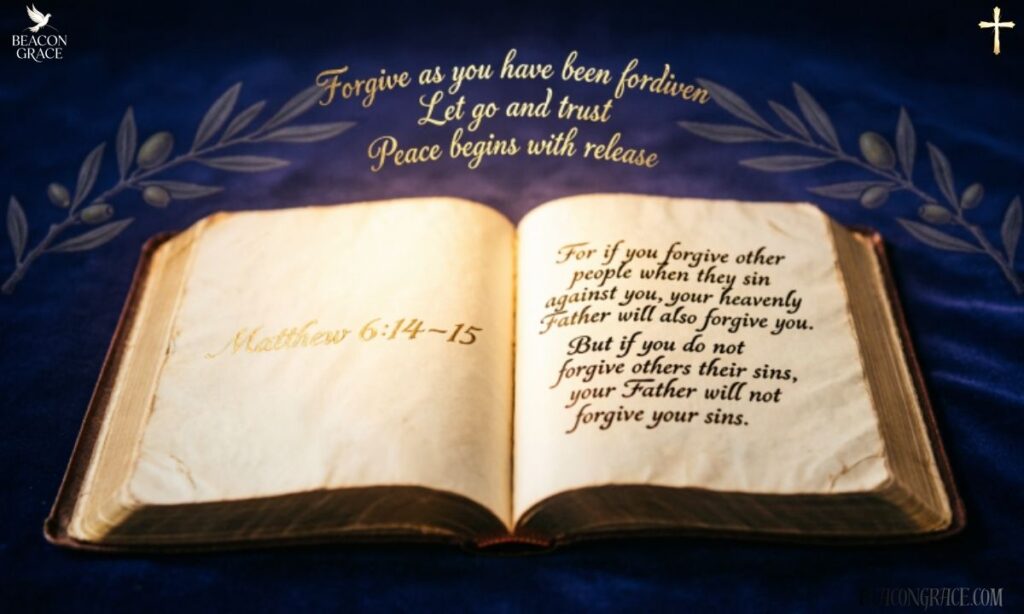 BEACON
GRACE
Forgive as you have been fordiven
Let go and trust
Peace begins with release
Matthew 6:14–15
For if you forgive other
people when they sin
against you, your heavenly
Father will also forgive you.
But if you do not
forgive others their sins,
your Father will not
forgive your sins.
BEACONGRACE.COM